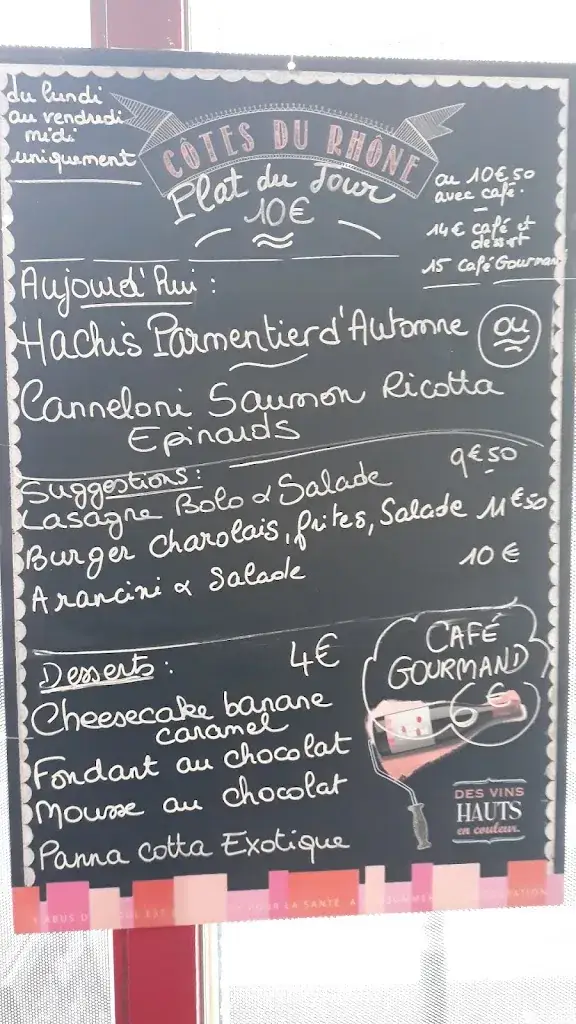 du lundi
au vendredi
midi
uniquement
CÔTES DU RHÔNE
Plat du Jour
10€
ou 10€50
avec café.
14€ café et
dessert
15 café Gourmand
Aujourd'hui :
Hachis Parmentier d'Automne
ou
Canneloni Saumon Ricotta
Epinards
Suggestions :
Lasagne Bolo & Salade 9€50
Burger Charolais, frites, Salade 11€50
Arancini & Salade 10€
Desserts : 4€
Cheesecake banane
caramel
Fondant au chocolat
Mousse au chocolat
Panna cotta Exotique
CAFÉ
GOURMAND
6€
DES VINS
HAUTS
en couleur.
ABUS EST POUR LA SANTÉ. A